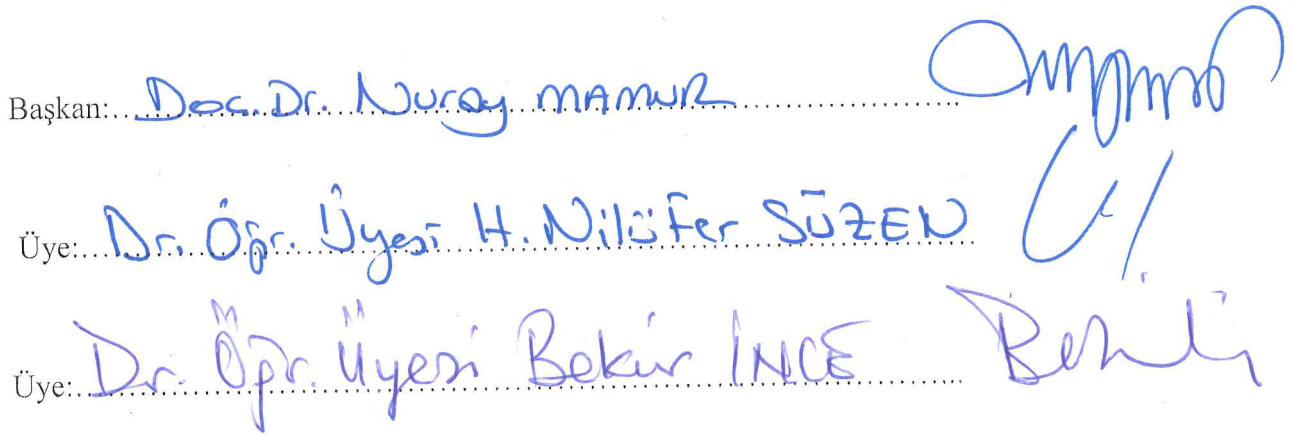 Başkan: Doç. Dr. Nuray MAMUR
Üye: Dr. Öğr. Üyesi H. Nilüfer SÜZEN
Üye: Dr. Öğr. Üyesi Bekir İNCE